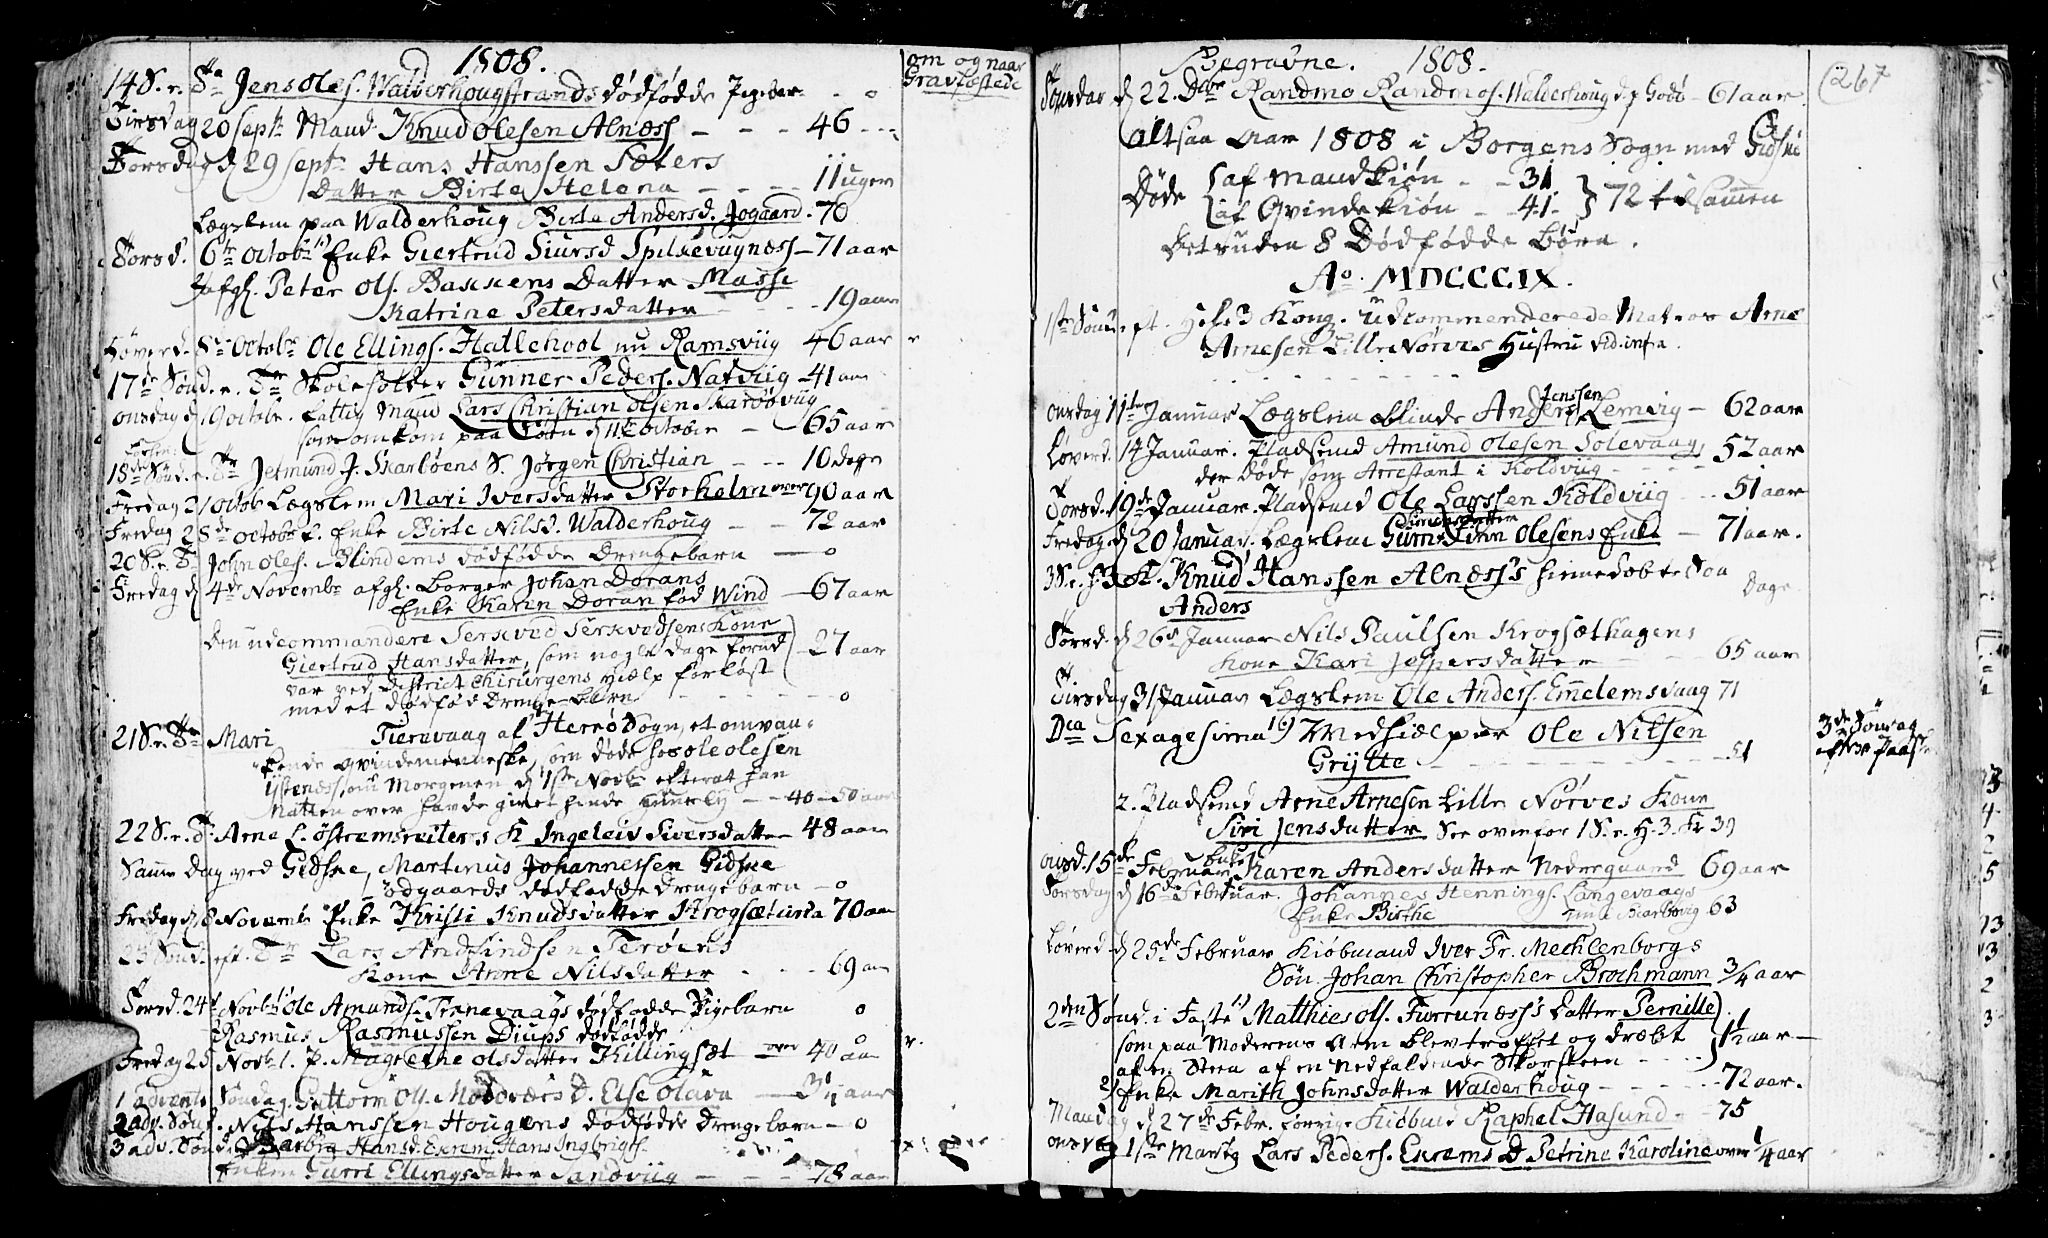 1808.
om og naar
Gravfæstede
14 S. e. Tr. Jens Oles. Walderhougstrands dødfødde Pigebar - o
Tirsdag 20 Septr Mand Knud Olesen Alnæss - - - 46
Torsdag d 29 Septr Hans Hanssen Sæters
Datter Birte Helena - - - 11 uger
Lægslem paa Walderhoug Birte Andersd. Jogaard - 70
Torsd. 6te Octobr 1) Enke Giertrud Siursd Spilkevugnæss - 71 aar
Afgl. Peter Ols. Bakkens Datter Masse
Katrine Petersdatter - - - 19 aar
Løverd. 8de Octobr Ole Ellings. Hallehool nu Ramsviig 46 aar
17de Sønd. e. Tr. Skoleholder Gunner Peders. Natviig - 41 aar
Onsdag d 19 Octobr. Fattig Mand Lars Christian Olsen Skarbøviig
som omkom paa Søen d 11te Octobr - 65 aar
18de Sønd. e. Tr Jetmund J. Skarbøens S. Jørgen Christian - - - 10 dage
Fredag 21 Octob Lægslem Mari Iversdatter Storholm over 90 aar
Fredag 28de Octobr. Enke Birte Nilsd. Walderhoug - - 72 aar
20 S. e. T. John Oles. Blindems dødfødde Drengebarn - o
Fredag d 4de Novembr afgl. Borger Johan Dorans
Enke Karen Doran fød Wind - 67 aar
Den udcommandere Serkved Serkvedsens Kone
Giertrud Hansdatter, som nogle dage forud - 27 aar
var ved District Chirurgens Hielp forløst
med et dødfød Drenge Barn - - - o
21 S. e. Tr. Mari Tiervaag af Herrø Sogn, et omvan-
kende Qvindemenneske, som døde hos Ole Olesen
Ystenæss, om Morgenen d 1ste Novbr efterat han
Natten over havde givet hende Huusly - - 40 - 50 aar
22 S. e. Tr. Arne L. Østremsreiters K Ingeleiv Siversdatter - 48 aar
Samme Dag ved Gidske, Martinus Johannessen Gidske
Ødgaards dødfødde Drengebarn - o
Fredag d 18 Novembr Enke Kristi Knudsdatter Krogsæturta 70 aar
23 Sønd. eft. Tr Lars Andfindsen Terøens
Kone Anne Nilsdatter - - - 69 aar
Torsd. 24d Novbr Ole Amunds. Tranevaags dødfødde Pigebarn o
Rasmus Rasmussen Diups dødfødde o
Fredag 25 Novb. 1. P. Magrethe Olsdatter Killingsæt over 40 aar
1 Advents Søndag. Guttorm Ols. Molværs D. Else Olava - 3 1/4 aar
2 adv. Sønd. Nils Hanssen Hougens dødfødde Drengebarn - o
3 adv. Sønd. Barbra Hansd. Exrem, Hans Ingbrigts.
Enken Gurri Ellingsdatter Sandviig - - - 78 aar
Begravne. 1808.
267
Torsdag d 22. Dcbr Randmo Randmos. Walderhoug d. p Godø - 61 aar
altsaa Aar 1808 i Borgens Sogn med Gidske
Døde af Mandkiøn - - 31
af Qvindekiøn - - 41 } 72 tilsammen
Desuden 8 Dødfødde Børn.
Ao. MDCCCIX.
1ste Sønd. eft. Hel. 3 Kong. Udcommenderede Matros Arne
Arnesen Lille Nørves Hustru vid. infra.
Onsdag 11te Januar Lægslem blinde Anders Jenssen Lemvig - 62 aar
Løverd. 14 Januar. Pladsemd Amund Olesen Solevaag, 52 aar
der døde som Arrestant i Koldvug - - -
Torsd. 19de Januar. Pladsemd Ole Larssen Koldviig - - 51 aar
Simensdatter
Fredag d 20 Januar. Lægslem Guro Finn Olesens Enke - 71 aar.
3 S. e. H3K. Knud Hanssen Alnæss's hiemedøbte Søn
Anders Dage
Torsd. d 26de Januar Nils Paulsen Krogsæthagens
Kone Kari Jespersdatter - - - 65 aar
Tirsdag 31 Januar Lægslem Ole Anders. Emelemsvaag 71
Dca Sexagesima 1) Medhielper Ole Nilsen
Grytte - - - 51
3de Søndag
efter Paaske
2. Pladsemd Arne Arnesen Lille Nørves Kone
Siri Jensdatter See ovenfor 1 S. e. H. 3. K 39
Onsd. 15de Februar Enke Karen Andersdatter Nedregaard 69 aar
Torsdag d 16de Februar. Johannes Hennings. Langevaags
Enke Birthe fma Barbovig 63
Løverd d 25de Februar Kiøbmand Iver Fr. Mechlenborgs
Søn Johan Christopher Brochmann 3/4 aar
2den Sønd. i Faste 1) Matthies Ols. Furrunæss's Datter Pernille
som paa Moderens Arm blev truffet og dræbt 1 1/2 aar -
af en Steen af en nedfaldende Skorsteen - - -
2) Enke Marith Johnsdatter Walderhoug - - - - 72 aar.
Mandag d 27de Febr. forrige Kiøbmd Raphel Hasund - - 75
Onsdag 1ste Marty Lars Peders. Exrems D Petrine Karoline over 1/4 aar